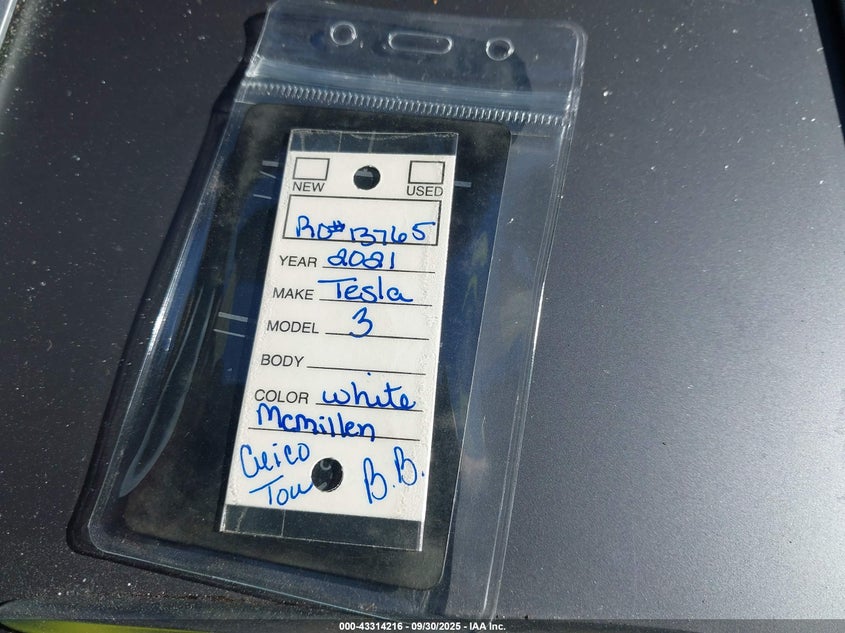 NEW USED
RO# 13765
YEAR 2021
MAKE Tesla
MODEL 3
BODY
COLOR white
McMillen
Geico
Tow B.B.
000-43314216 - 09/30/2025 - IAA Inc.